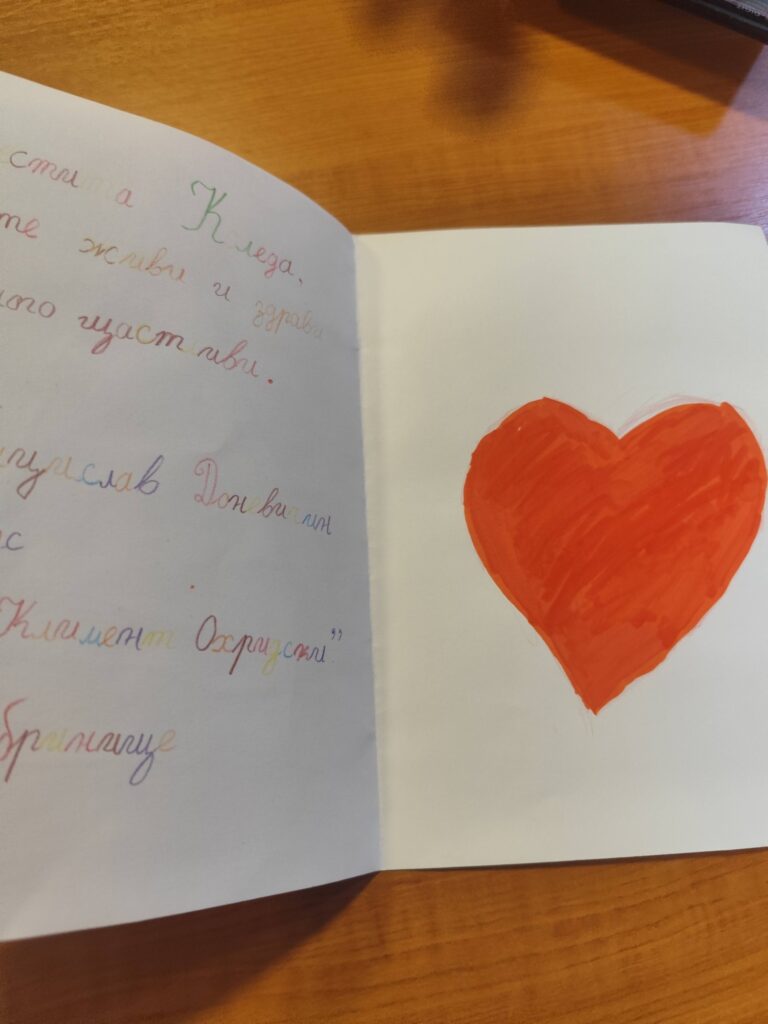 стита Коледа,
те живи и здрави
ного щастливи.
ислав Доневичин
с
Климент Охридски"
бринище